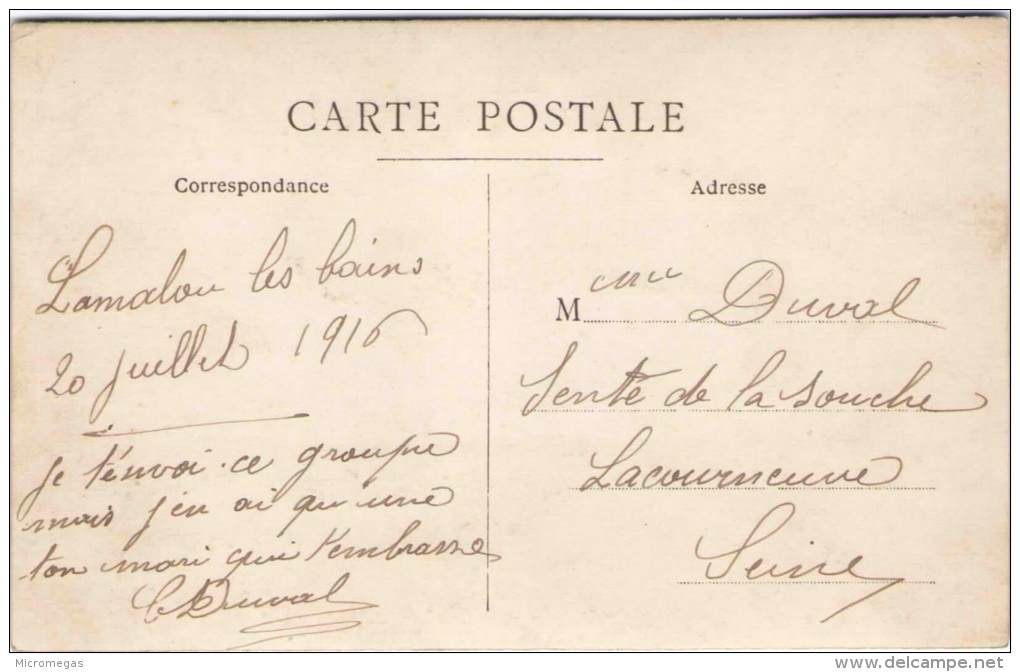 CARTE POSTALE
Correspondance
Lamalou les bains
20 juillet 1916
je t'envoi ce groupe
mais j'en ai qu une
ton mari qui t'embrasse
C Duval
Adresse
Mme Duval
Sente de la souche
Lacourneuve
Seine
Micromegas
delcampe.net